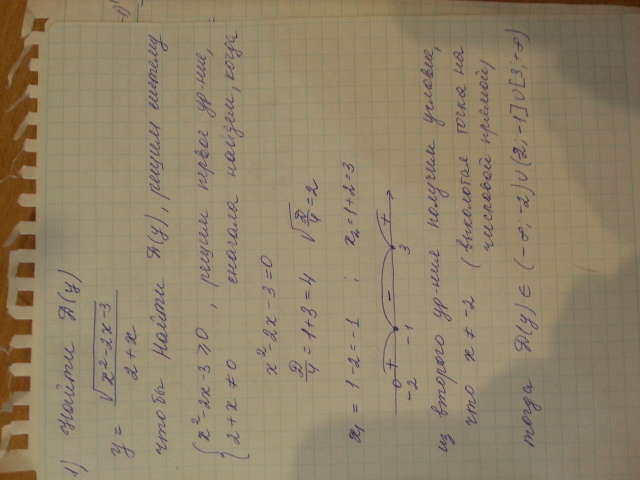 1) Найти D(y)
y = √(x²-2x-3) / (2+x)
чтобы найти D(y), решим систему
{ x²-2x-3 ≥ 0 , решим первое ур-ние,
{ 2+x ≠ 0 сначала найдем, когда
x²-2x-3=0
D/4 = 1+3 = 4 √(D/4) = 2
x₁ = 1-2 = -1 ; x₂ = 1+2 = 3
+ - +
-2 -1 3
из второго ур-ния получим условие,
что x ≠ -2 (выколотая точка на
числовой прямой)
тогда D(y) ∈ (-∞; -2) ∪ (2; -1] ∪ [3; +∞)